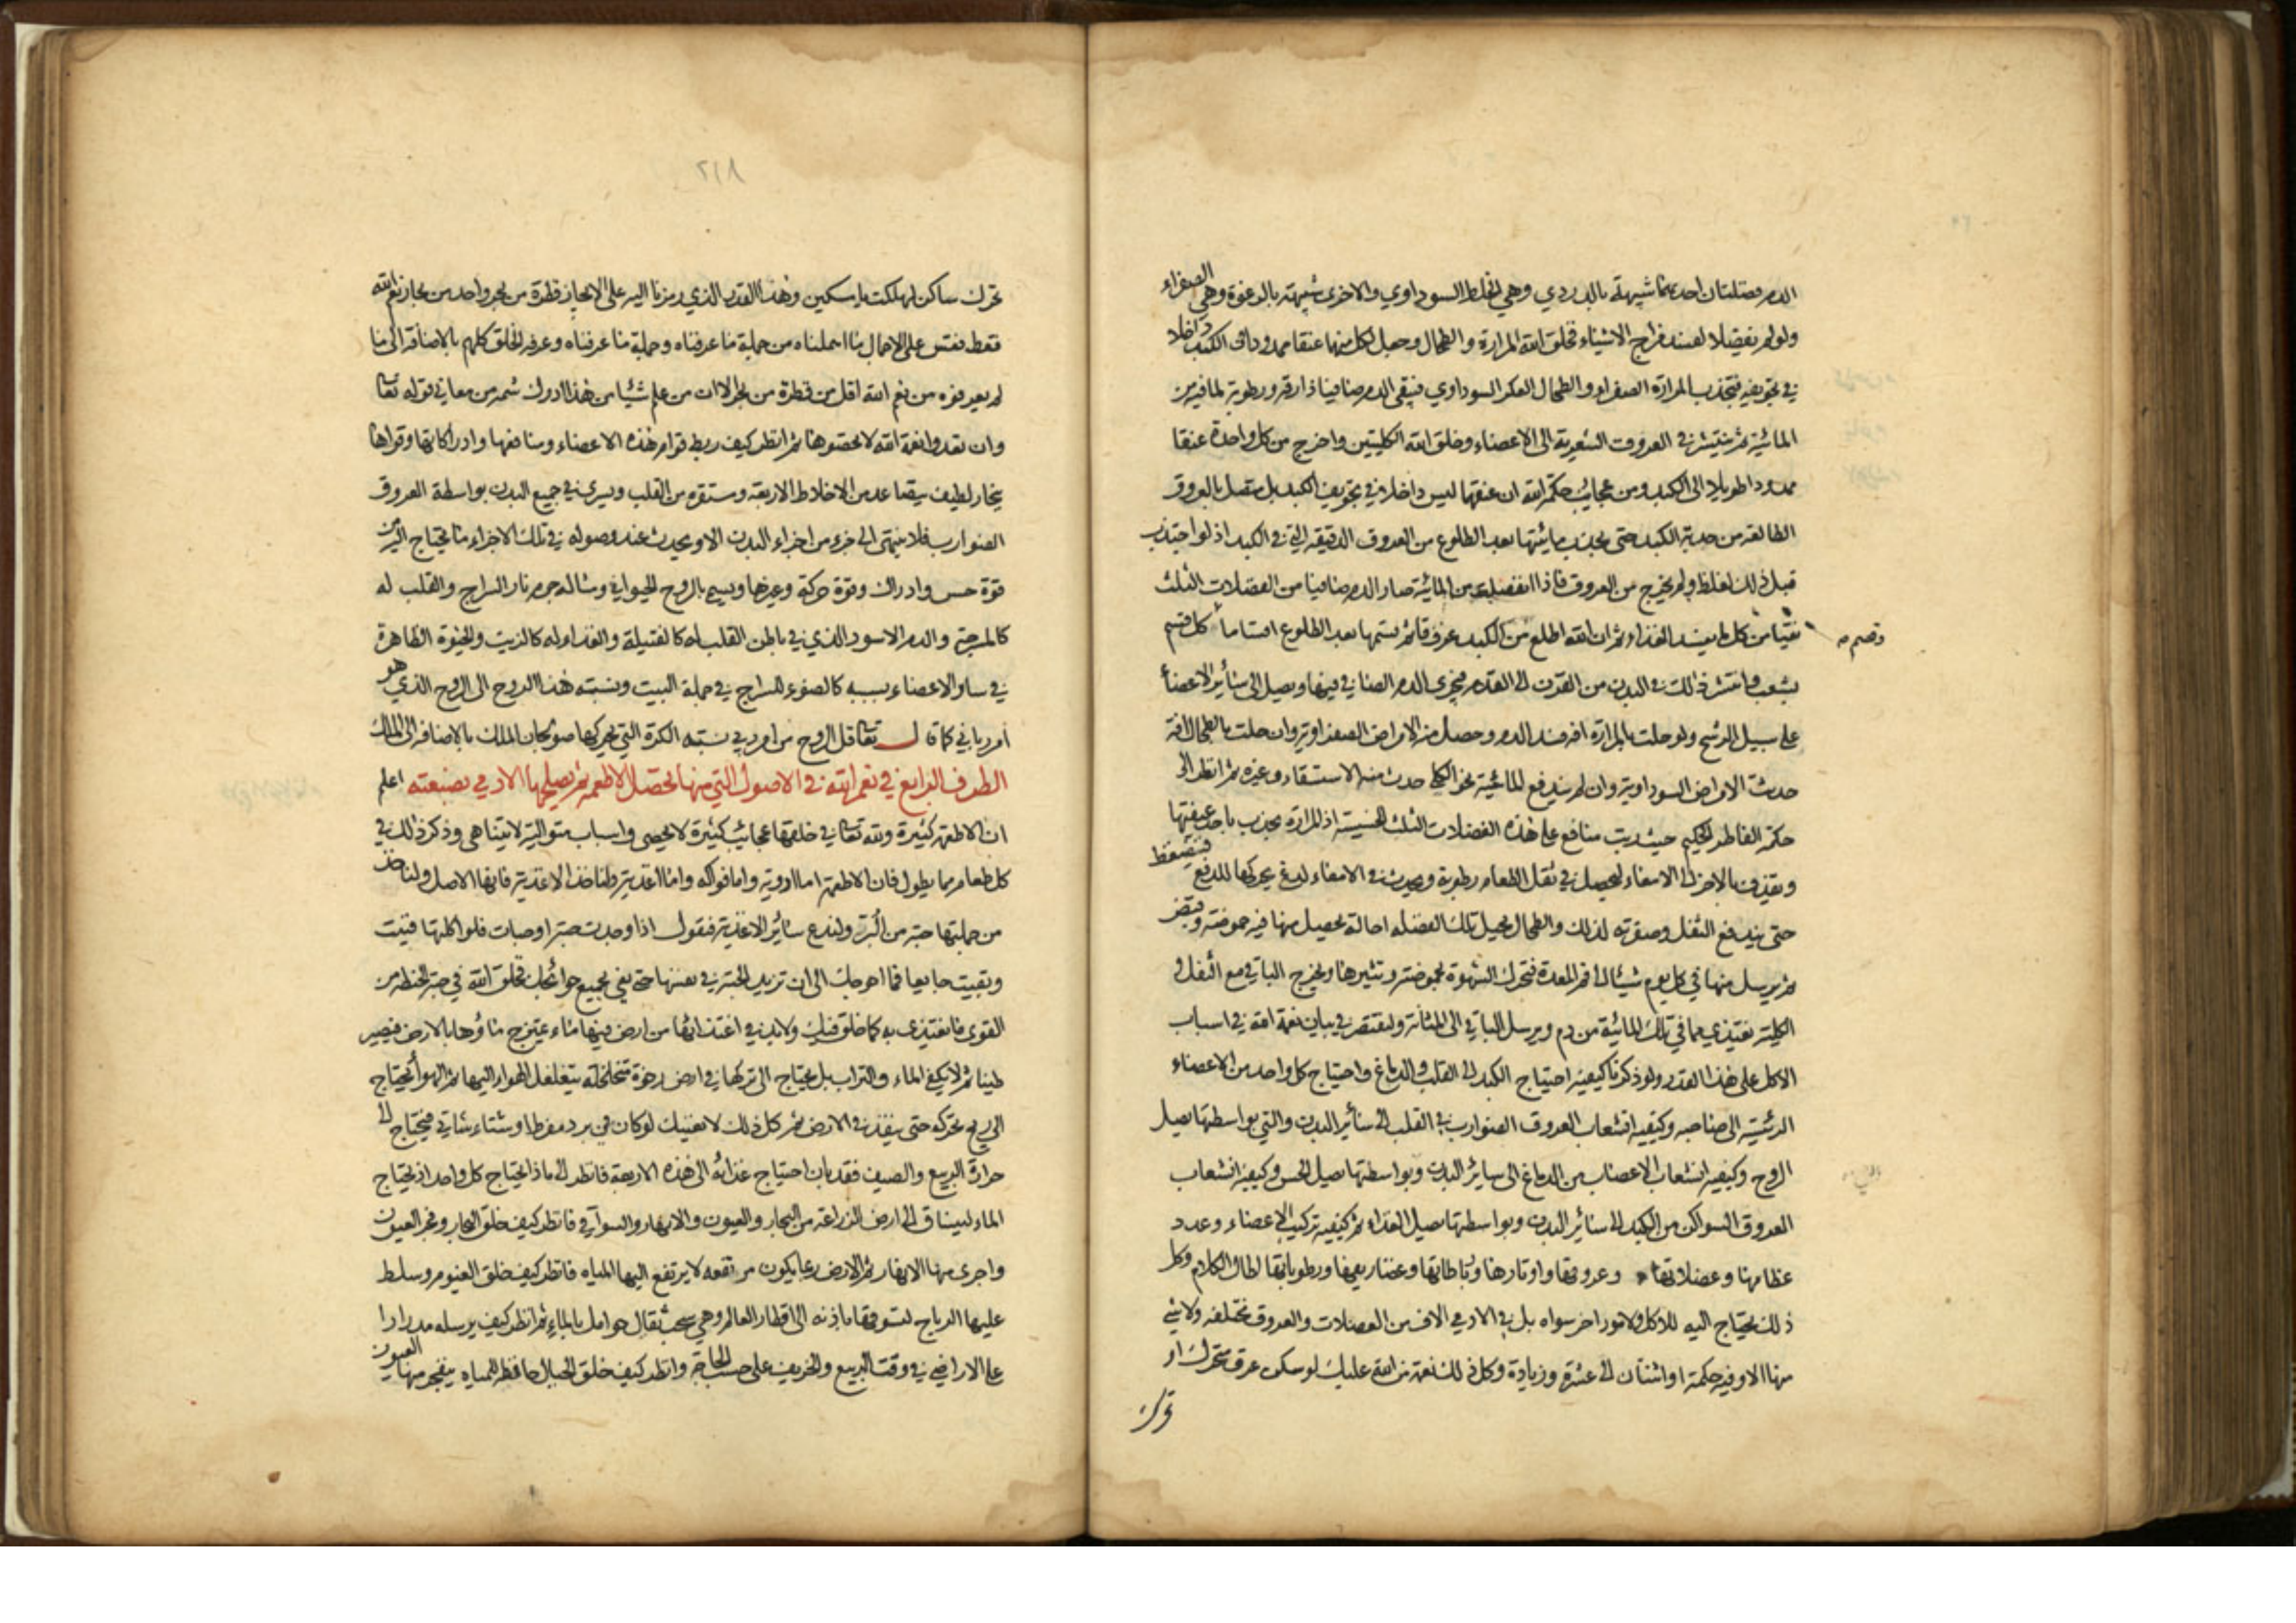 الدم فضلتان احديهما شبيهة بالدردي وهي الخلط السوداوي والاخرى شبيهة بالرغوة وهي الصفراء
ولو لم تفصلا لفسد مزاج الاشياء فخلق الله المرارة والطحال وجعل لكل منهما عنقا ممدودا في الكبد داخلا
في تجويفه فتجذب المرارة الصفراء والطحال العكر السوداوي فيبقى الدم صافيا ذا رقة ورطوبة لما فيه من
المائية ثم ينتشر في العروق الشعرية الى الاعضاء وخلق الله الكليتين واخرج من كل واحدة عنقا
ممدودا طويلا الى الكبد ومن عجائب حكمة الله ان عنقهما ليس داخلا في تجويف الكبد بل متصل بالعروق
الطالعة من حدبة الكبد حتى يجذب مائيتها بعد الطلوع من العروق الدقيقة التي في الكبد اذ لو اجتذب
قبل ذلك لغلظ ولم يخرج من العروق فاذا انفصلت من المائية صار الدم صافيا من الفضلات الثلث
نقيا من كل ما يفسد الغذاء ثم ان الله اطلع من الكبد عروقا ثم قسمها بعد الطلوع اقساما كل قسم
وقسم
بشعب وانتشر ذلك في البدن من القرن الى القدم فيجرى الدم الصافي فيها ويصل الى سائر الاعضا
على سبيل الرشح ولو حلت بالمرارة افة فسد الدم وحصل منه الامراض الصفراوية وان حلت بالطحال افة
حدثت الامراض السوداوية وان لم يندفع المائية نحو الكلى حدث منه الاستسقاء وغيره ثم انظر الى
حكمة الفاطر الحكيم حيث رتب منافع على هذه الفضلات الثلث الخسيسة اذ المرارة تجذب باحد عنقيها
وتقذف بالاخر الى الامعاء ليحصل في ثفل الطعام رطوبة ويحدث في الامعاء لدغ يحركها للدفع فتنضغط
حتى يندفع الثفل وصفرته لذلك والطحال يحيل تلك الفضله احالة يحصل منها فيه حموضة وقبض
ثم يرسل منها في كل يوم شيئا الى فم المعدة فتحرك الشهوة بحموضته وتثيرها ويخرج الباقي مع الثفل و
الكلية تغتذي بما في تلك المائية من دم ويرسل الباقي الى المثانة ولنقتصر في بيان نعمة الله في اسباب
الاكل على هذا القدر ولو ذكرنا كيفية احتياج الكبد الى القلب والدماغ واحتياج كل واحد من الاعضاء
الرئيسة الى صاحبه وكيفيه انشعاب العروق الضوارب في القلب الى سائر البدن والتي بواسطتها يصل
الروح وكيفية انشعاب الاعصاب من الدماغ الى سائر البدن وبواسطتها يصل الحس وكيفية انشعاب
العروق السواكن من الكبد الى سائر البدن وبواسطتها يصل الغذاء ثم كيفية تركيب الاعضاء وعدد
عظامها وعضلاتها وعروقها واوتارها ورباطاتها وغضاريفها ورطوباتها لطال الكلام وكل
ذلك يحتاج اليه للاكل ولامور اخر سواه بل في الادمي الاف من العضلات والعروق مختلفه ولا شي
منها الا وفيه حكمة او اثنتان الى عشرة وزيادة وكل ذلك نعمة من الله عليك لو سكن عرق متحرك او
تحرك
٢١٨
تحرك ساكن لهلكت يا مسكين وهذا القدر الذي رمزنا اليه على الايجاز قطرة من بحر واحد من بحار نعم الله
فقط فقس على الاجمال ما اهملناه من جملة ما عرفناه وجملة ما عرفناه وعرفه الخلق كلهم بالاضافة الى ما
لم يعرفوه من نعم الله اقل من قطرة من بحر الا ان من علم شيئا من هذا ادرك شمه من معاني قوله تعا
وان تعدوا نعمة الله لا تحصوها ثم انظر كيف ربط قوام هذه الاعضاء ومنافعها وادراكاتها وقواها
ببخار لطيف يتصاعد من الاخلاط الاربعة ومستقره من القلب ويسرى في جميع البدن بواسطة العروق
الضوارب فلا ينتهي الى جزء من اجزاء البدن الا ويحدث عند وصوله في تلك الاجزاء ما يحتاج اليه من
قوة حس وادراك وقوة حركة وغيرها ويسمى بالروح الحيواني ومثاله جرم نار السراج والقلب له
كالمسرجة والدم الاسود الذي في باطن القلب له كالفتيلة والغذاء له كالزيت والحيوة الظاهرة
في سائر الاعضاء بسببه كالضوء للسراج في جملة البيت ونسبة هذا الروح الى الروح الذي هو
امر رباني كما قال تعا قل الروح من امر ربي نسبة الكرة التي يحركها صولجان الملك بالاضافة الى الملك
الطرف الرابع في نعم الله في الاصول التي منها تحصل الاطعمة ثم يصلحها الادمي بصنعته اعلم
ان الاطعمة كثيرة ولله تعا في خلقها عجائب كثيرة لا تحصى واسباب متوالية لا يتناهى وذكر ذلك في
كل طعام مما يطول فان الاطعمة اما ادوية واما فواكه واما اغذية ولناخذ الاغذية فانها الاصل ولناخذ
من جملتها حبة من البر ولندع سائر الاغذية فنقول اذا وجدت حبة او حبات فلو اكلتها فنيت
وبقيت جايعا فما احوجك الى ان تزيد الحبة في نفسها حتى يفي بجميع حوائجك فخلق الله في حبة الحنطة من
القوى ما تغتذى به كما خلق فيك ولا بد في اغتذائها من ارض فيها ماء يمتزج ماؤها بالارض فيصير
طينا ثم لا يكفي الماء والتراب بل يحتاج الى تركها في ارض رخوة متخلخلة يتغلغل الهواء اليها ثم الهوا يحتاج
الى ريح تحركه حتى ينفذ في الارض ثم كل ذلك لا يغنيك لو كان في برد مفرط او شتاء شات فيحتاج الى
حرارة الربيع والصيف فقد بان احتياج غذائه الى هذه الاربعة فانظر الى ماذا يحتاج كل واحد اذ يحتاج
الماء لينساق الى ارض الزراعة من البحار والعيون والانهار والسواقي فانظر كيف خلق البحار وفجر العيون
واجرى منها الانهار ثم الارض ربما يكون مرتفعه لا يرتفع اليها المياه فانظر كيف خلق الغيوم وسلط
عليها الرياح لتسوقها باذنه الى اقطار العالم وهي سحب ثقال حوامل بالماء ثم انظر كيف يرسله مدرارا
على الاراضي في وقت الربيع والخريف على حسب الحاجة وانظر كيف خلق الجبال حافظة للمياه ينفجر منها العيون